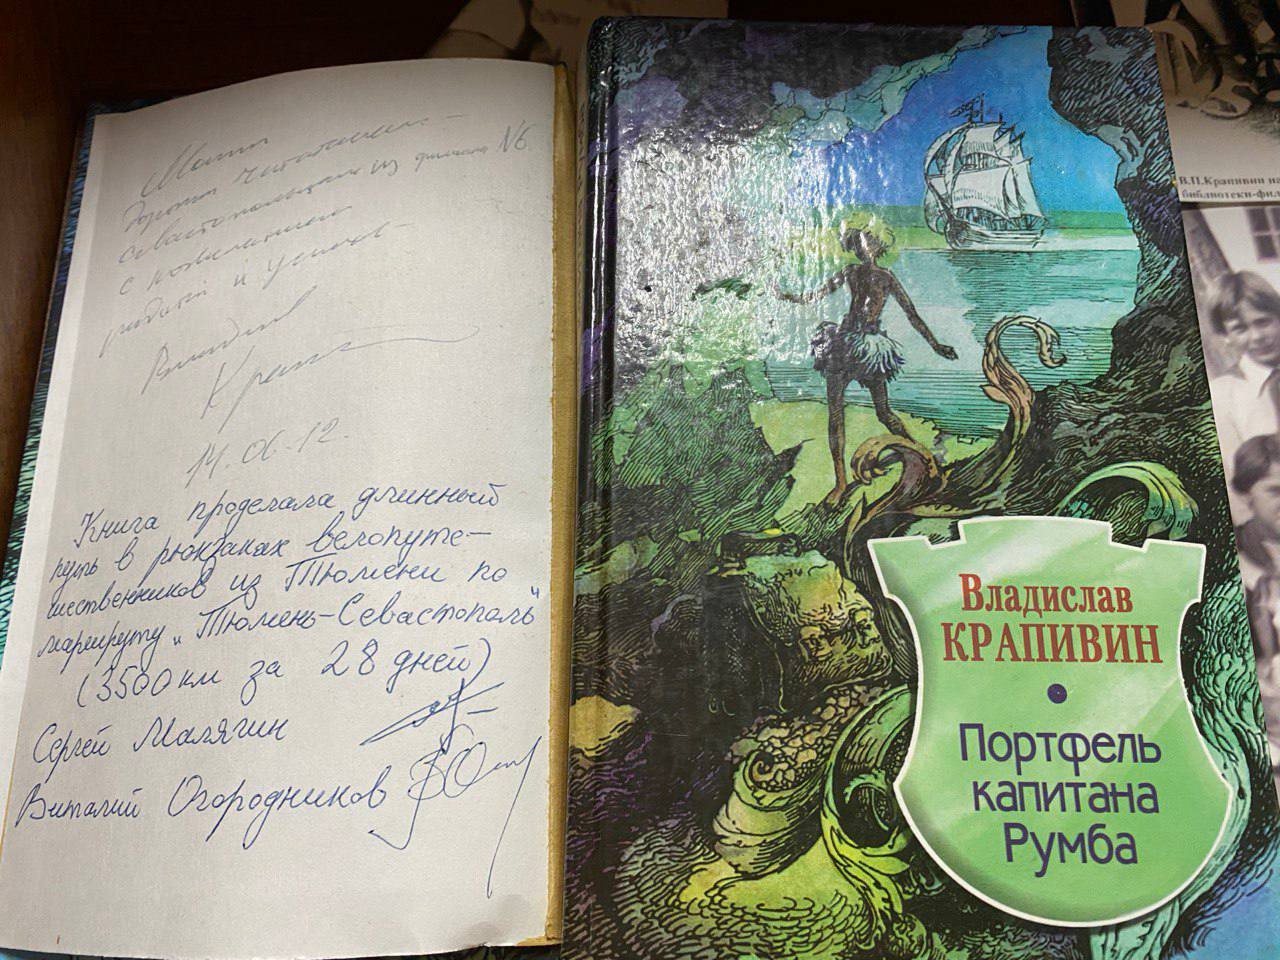 дорогим читателям-
севастопольцам из филиала №6
с пожеланием
радостей и успехов -
Владислав
Крапивин
14.06.12.
Книга проделала длинный
путь в рюкзаках велопуте-
шественников из Тюмени по
маршруту „Тюмень-Севастополь"
(3500км за 28 дней)
Сергей Малягин
Виталий Огородников
Владислав
КРАПИВИН
Портфель
капитана
Румба
В.П.Крапивин на
библиотеки-фил